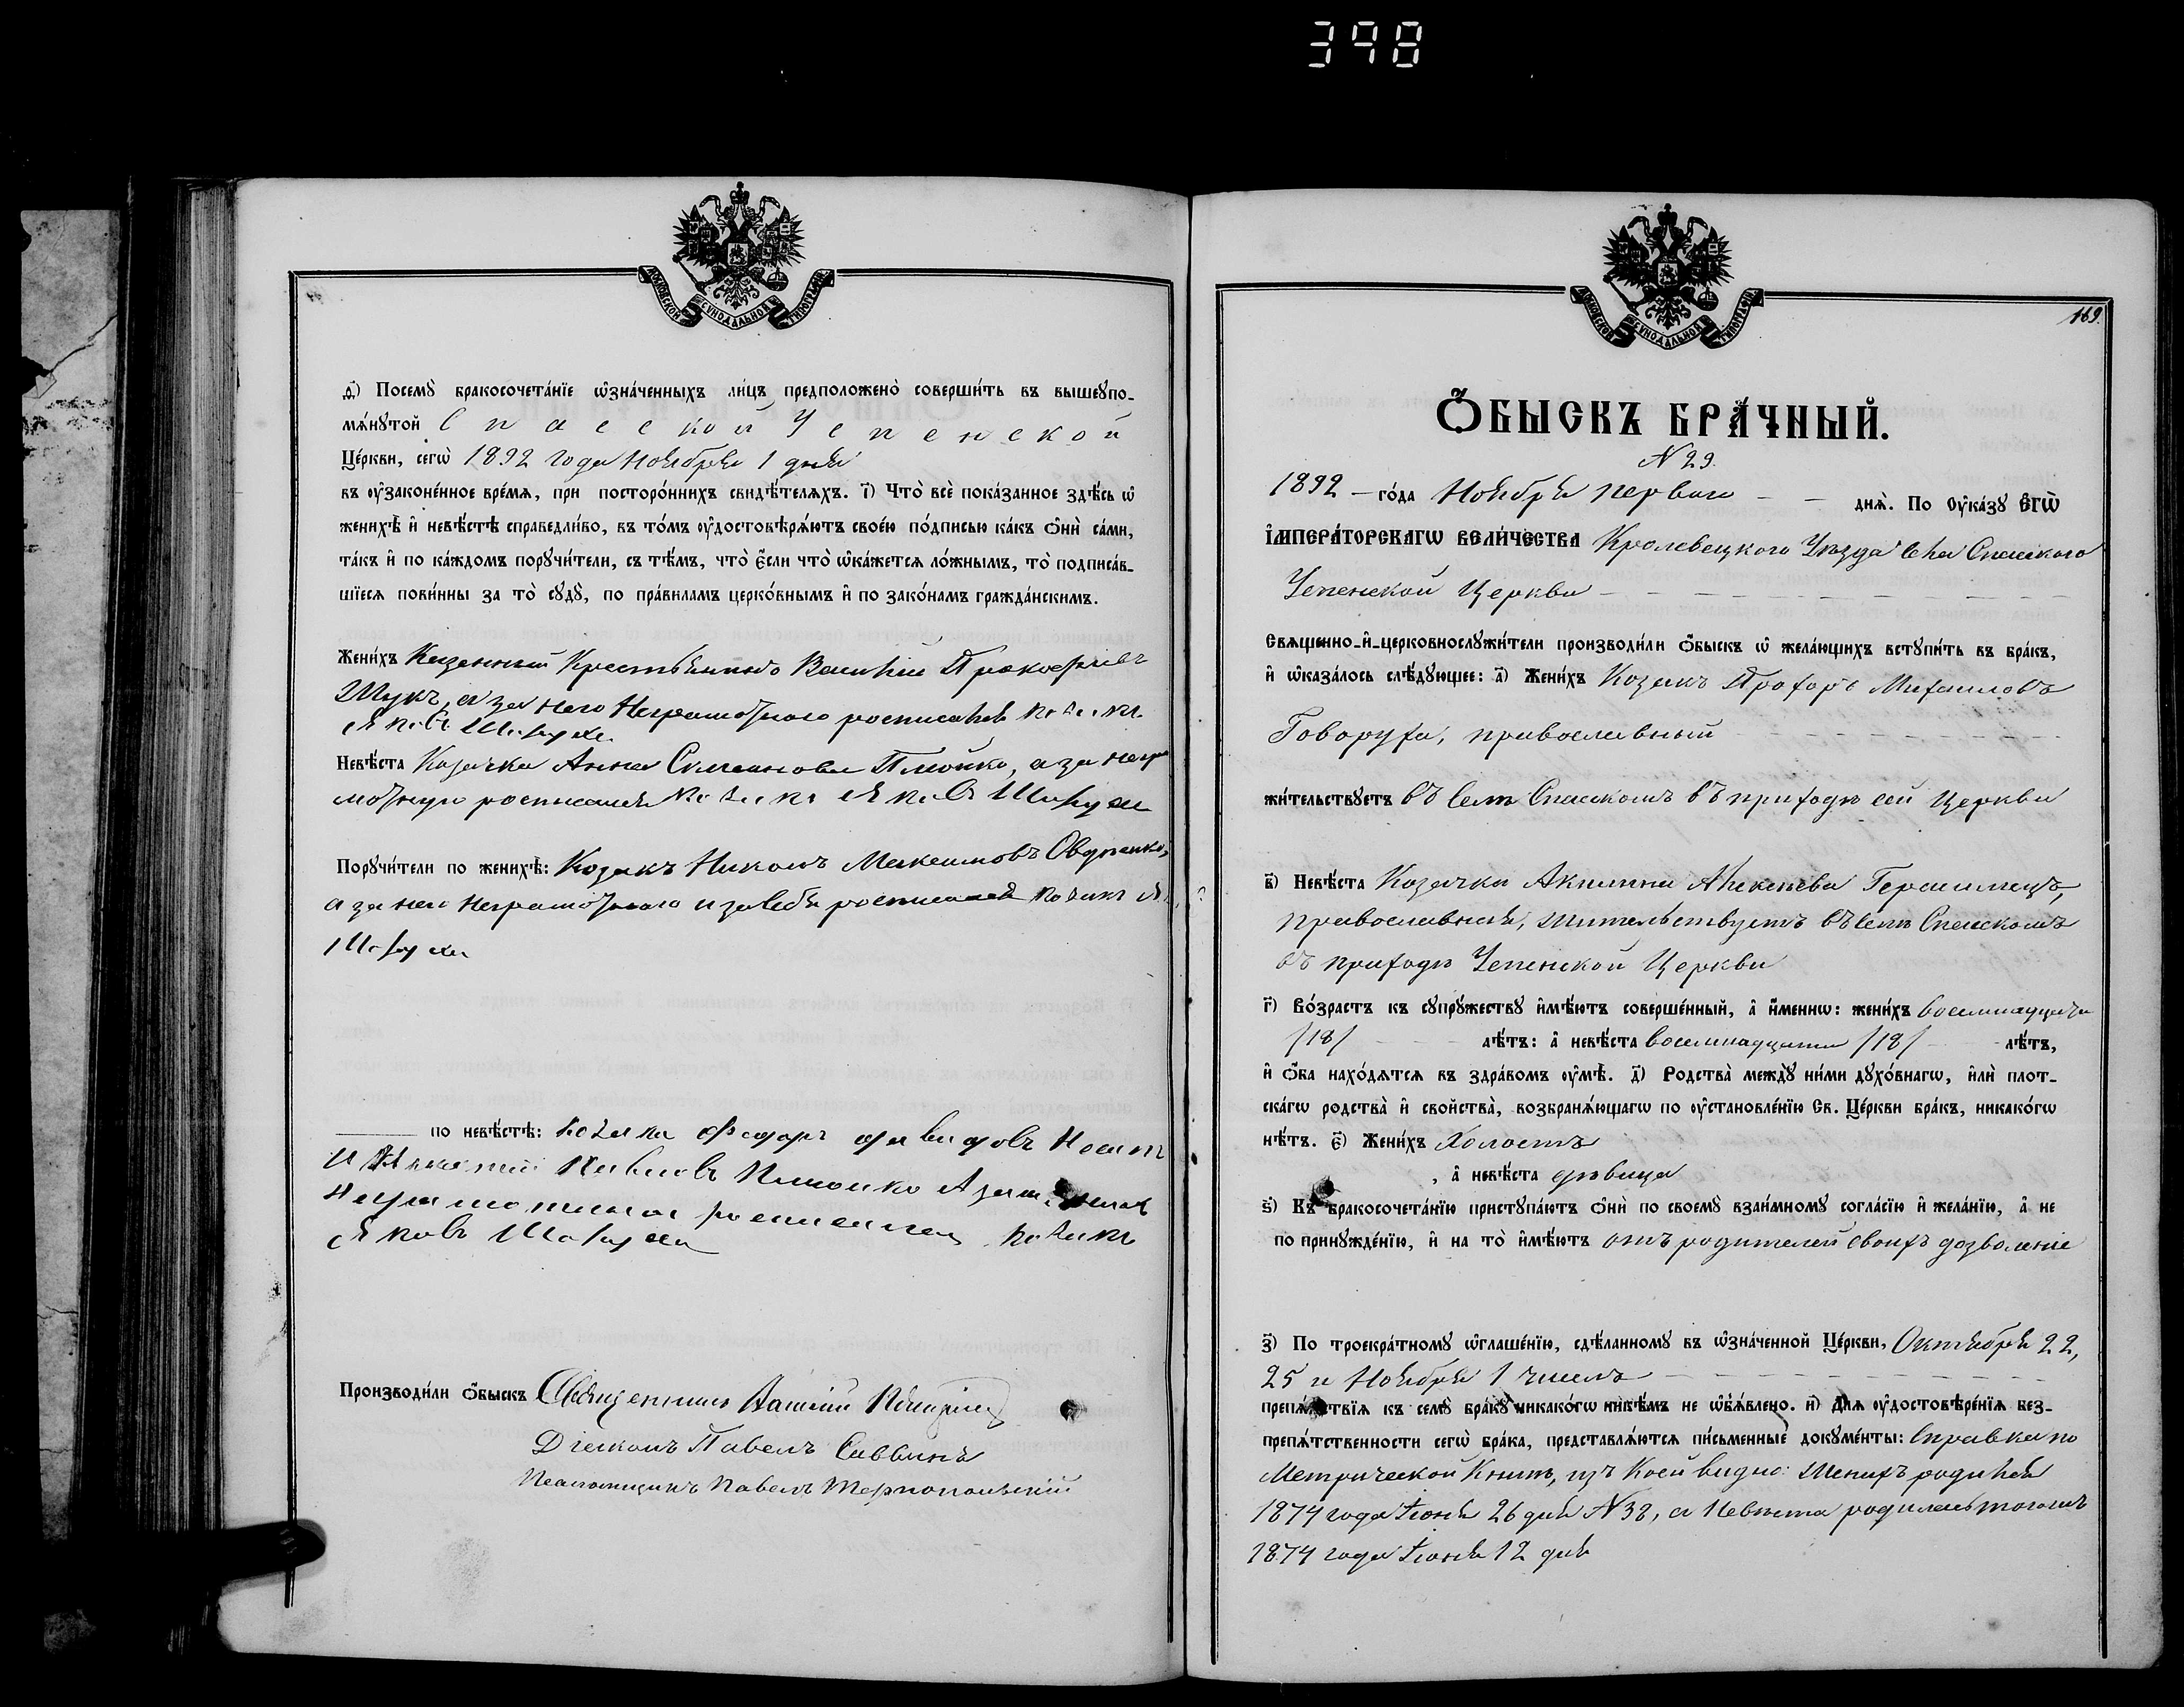 398
МОСКОВСКОЙ СѴНОДАЛЬНОЙ ТИПОГРАФІИ
д҃) Посемꙋ̀ бракосочета́нїе ѡ҆зна́ченныхъ ли́цъ предположено̀ соверши́ть въ вышеꙋпо-
мѧ́нꙋтой Спасской Успенской
Це́ркви, сегѡ̀ 1892 года Ноября 1 дня
въ ᲂу҆законе́нное вре́мѧ, при посторо́ннихъ свидѣ́телѧхъ. і҃) Что̀ всѐ пока́занное здѣ́сь ѡ҆
женихѣ̀ и҆ невѣ́стѣ справедли́во, въ то́мъ ᲂу҆достовѣрѧ́ютъ свое́ю по́дписью ка́къ ѻ҆нѝ са́ми,
та́къ и҆ по ка́ждомъ порꙋчи́тели, съ тѣ́мъ, что̀ є҆́сли что̀ ѡ҆ка́жетсѧ ло́жнымъ, то̀ подписа́в-
шїесѧ пови́нны за то̀ сꙋдꙋ̀, по пра́виламъ церко́внымъ и҆ по зако́намъ гражда́нскимъ.
Жени́хъ Казенный Крестьянинъ Василій Прокофіевъ
Шукъ, а за него Неграмотнаго росписался козакъ
Яковъ
Невѣ́ста Козачка Анна Симеонова Плюйко, а за негра
мотную росписался козакъ Яковъ
Порꙋчи́тели по женихѣ̀: Козакъ Никонъ Максимовъ
а за него неграмотнаго и за себя росписался козакъ
по невѣ́стѣ: козаки Федоръ Давидовъ
и Павловъ а за
неграмотныхъ росписался козакъ
Яковъ
Производи́ли ѻ҆́быскъ Священникъ
Діаконъ Павелъ Саввинъ
Псаломщикъ Павелъ Тернопольскій
МОСКОВСКОЙ СѴНОДАЛЬНОЙ ТИПОГРАФІИ
169.
Ѻ҆́БЫСКЪ БРА́ЧНЫЙ.
N 29.
1892 – го́да Ноября перваго – – днѧ̀. По ᲂу҆ка́зꙋ Є҆ГѠ̀
І҆МПЕРА́ТОРСКАГѠ ВЕЛИ́ЧЕСТВА Кролевецкого Уѣзда Села Спасского
Успенской Церкви
Свѧще́нно-и҆-церковнослꙋжи́тели производи́ли ѻ҆́быскъ ѡ҆ жела́ющихъ встꙋпи́ть въ бра́къ,
и҆ ѡ҆каза́лось слѣ́дꙋющее: а҃) Жени́хъ Козакъ Прохоръ Михаиловъ
Говоруха, православный
жи́тельствꙋетъ въ Селѣ Спасскомъ въ приходѣ сей Церкви
в҃) Невѣ́ста Козачка Акилина Алексѣева Герасимецъ,
православная, жительствуетъ въ Селѣ Спасскомъ
въ приходѣ Успенской Церкви
г҃) Во́зрастъ къ сꙋпрꙋ́жествꙋ и҆мѣ́ютъ соверше́нный, а҆ и҆́меннѡ: жени́хъ восемнадцати
/18/ лѣ́тъ: а҆ невѣ́ста восемнадцати /18/ лѣ́тъ,
и҆ ѻ҆́ба нахо́дѧтсѧ въ здра́вомъ ᲂу҆мѣ̀. д҃) Родства̀ междꙋ̀ ни́ми дꙋхо́внагѡ, и҆лѝ пло́т-
скагѡ родства̀ и҆ свойства̀, возбранѧ́ющагѡ по ᲂу҆становле́нїю Св. Це́ркви бра́къ, никако́гѡ
нѣ́тъ. є҃) Жени́хъ Холостъ
, а҆ невѣ́ста дѣвица
ѕ҃) Къ бракосочета́нїю пристꙋпа́ютъ ѻ҆нѝ по своемꙋ̀ взаи́мномꙋ согла́сїю и҆ жела́нїю, а҆ не
по принꙋжде́нїю, и҆ на то̀ и҆мѣ́ютъ отъ родителей своихъ дозволеніе
з҃) По троекра́тномꙋ ѡ҆глаше́нїю, сдѣ́ланномꙋ въ ѡ҆зна́ченной Це́ркви, Октября 22,
25 и Ноября 1 числъ
препѧ́тствїѧ къ семꙋ̀ бра́кꙋ никако́гѡ никѣ́мъ не ѡ҆б̾ѧ́влено. и҃) Длѧ ᲂу҆достовѣре́нїѧ без-
препѧ́тственности сегѡ̀ бра́ка, представлѧ́ютсѧ пи́сьменныѐ докꙋме́нты: Справка по
Метрической Книгѣ, изъ коей видно: Женихъ родился
1874 года Іюня 26 дня N 38, а Невѣста родилась тогожъ
1874 года Іюня 12 дня